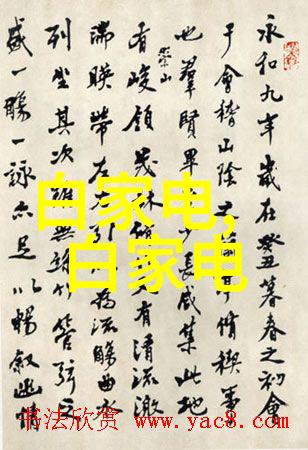 永和九年歲在癸丑暮春之初會
于會稽山陰之蘭亭脩稧事
也羣賢畢少長咸集此地
有崇山峻領茂林有清流激
湍暎帶左右引為流觴曲水
列坐其次雖無絲竹管弦之
盛一觴一詠亦足以暢敘幽情
白家电,
白家电
书法欣赏 www.yac8.com